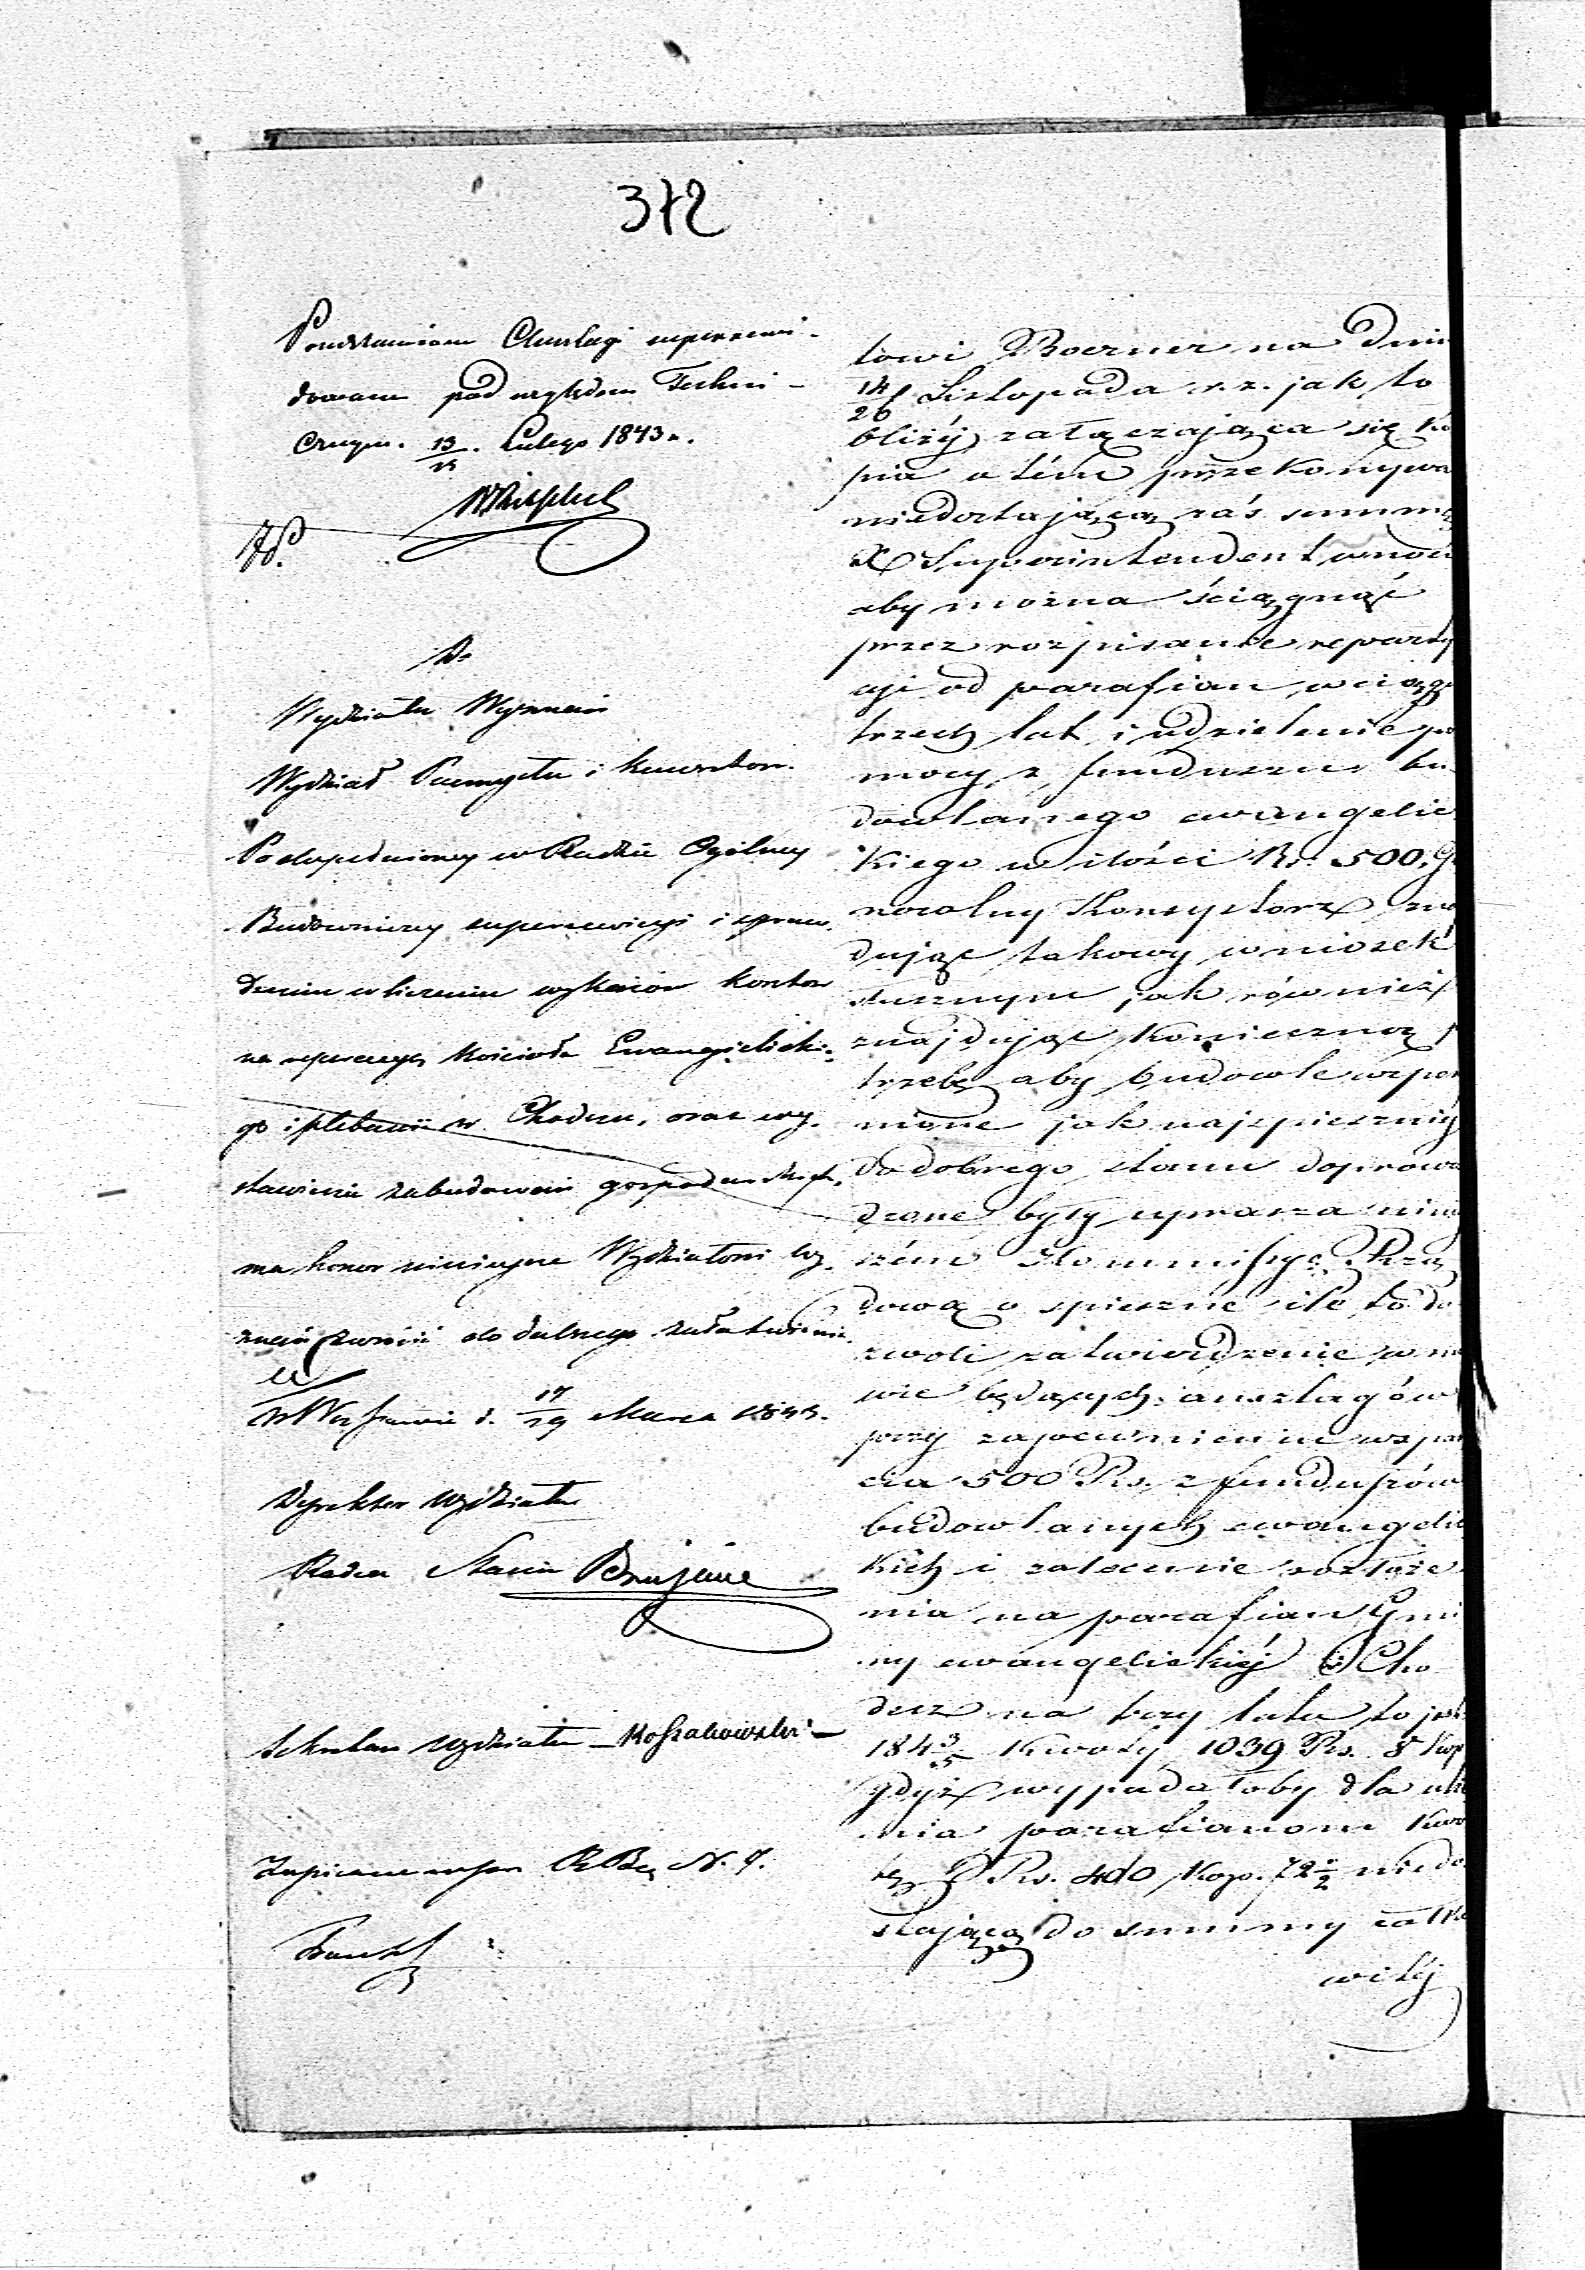 372
Przedstawiam Anszlagi superrewi-
dowane pod względem Techni-
cznym. 13/25 Lutego 1843 r.
Do
Wydziału Wyznań
Wydział Przemysłu i Kunsztów.
Po dopełnionej w Radzie Ogólnej
Budowniczej superrewizyi i spraw-
dzeniu w liczeniu wykazów kosztów
na reperacyą Kościoła Ewangielickie-
go i plebanii w Chodczu, oraz wy-
stawienie zabudowań gospodarskich,
ma honor niniejsze Wydziałowi Wy-
znań zwrócić do dalszego załatwienia.
w Warszawie d. 17/29 Marca 1843.
Dyrektor Wydziału
Radca Stanu
Sekretarz Wydziału
Zapisano N. 7.
towi Boerner na dniu
14/26 Listopada r. z. jak to
bliżéj załączająca się ko
pia o tém przekonywa
niedostającą zaś summę
X Superintendent wnosi
aby można ściągnąć
przez rozpisanie reparty
cyi od parafian w ciągu
trzech lat i udzielenie po
mocy z funduszu bu-
dowlanego ewangelic
kiego w ilości Rs. 500. Ge
neralny Konsystorz znaj
dując takowy wniosek
słusznym jak również
znajdując konieczną po
trzebę aby budowle wspom
nione jak najspieszniéj
do dobrego stanu doprowa
dzone były uprasza niniej
szém Kommissyę Rzą
dową o spieszne ile to do
zwoli zatwierdzenie w mo
wie będących anszlagów
przy zapewnieniu wspar
cia 500 Rs. z funduszów
budowlanych ewangelic
kich i zalecenie rozłoże
nia na parafian Gmi
ny ewangelickiéj w Cho
decz na trzy lata to jest
1843/5 kwoty 1039 Rs. 8 kop
gdyż wypadałoby dla
nia parafianom kwo
tę Rs. 440 kop. 72½ niedo
stającą do summy całko
witéj